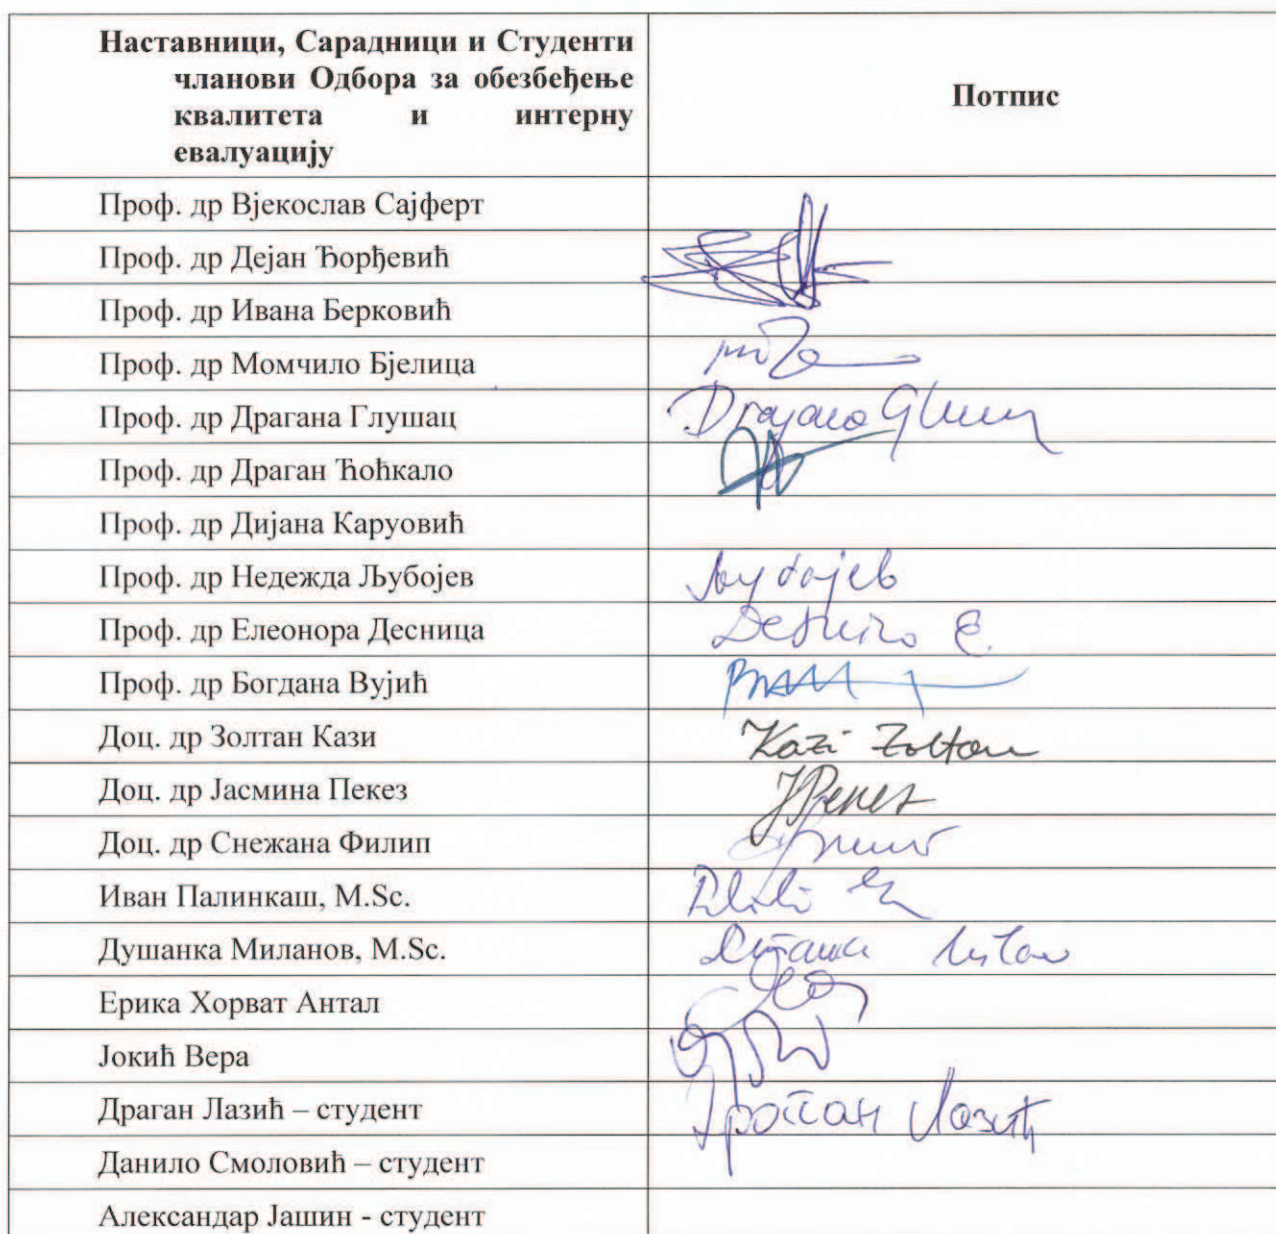 Наставници, Сарадници и Студенти
чланови Одбора за обезбеђење
квалитета и интерну
евалуацију
Потпис
Проф. др Вјекослав Сајферт
Проф. др Дејан Ђорђевић
Проф. др Ивана Берковић
Проф. др Момчило Бјелица
Проф. др Драгана Глушац
Проф. др Драган Ћоћкало
Проф. др Дијана Каруовић
Проф. др Недежда Љубојев
Проф. др Елеонора Десница
Проф. др Богдана Вујић
Доц. др Золтан Кази Kazi Zoltan
Доц. др Јасмина Пекез
Доц. др Снежана Филип
Иван Палинкаш, M.Sc.
Душанка Миланов, M.Sc.
Ерика Хорват Антал
Јокић Вера
Драган Лазић – студент
Данило Смоловић – студент
Александар Јашин - студент